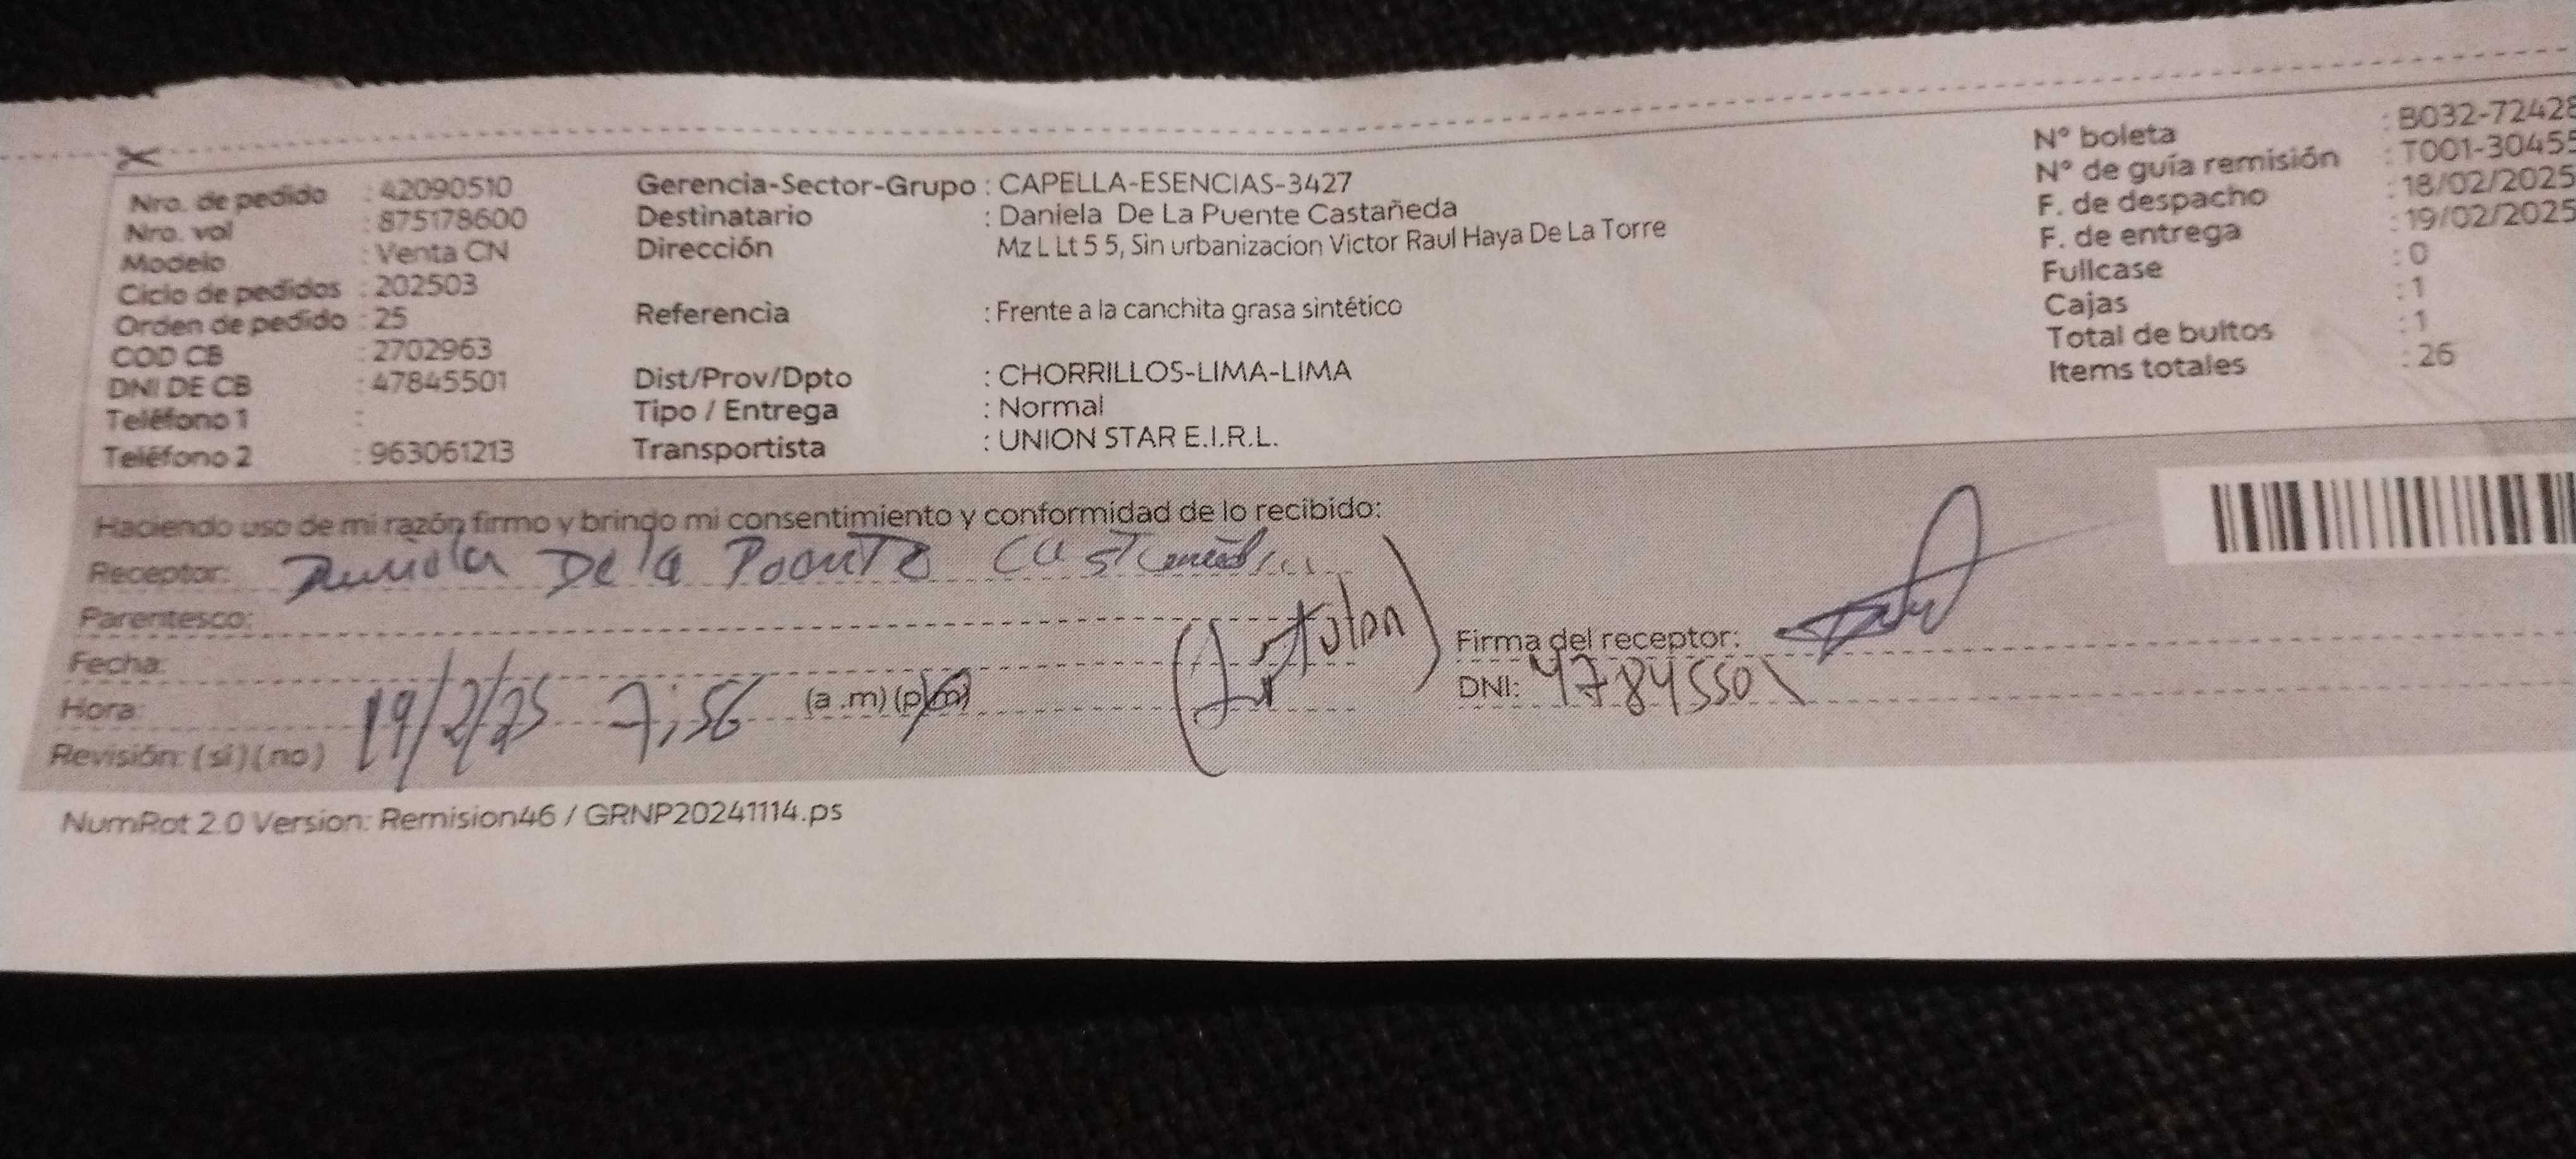 Nro. de pedido : 42090510
Nro. vol : 875178600
Modelo : Venta CN
Ciclo de pedidos : 202503
Orden de pedido : 25
COD CB : 2702963
DNI DE CB : 47845501
Teléfono 1 :
Teléfono 2 : 963061213
Gerencia-Sector-Grupo : CAPELLA-ESENCIAS-3427
Destinatario : Daniela De La Puente Castañeda
Dirección Mz L Lt 5 5, Sin urbanizacion Victor Raul Haya De La Torre
Referencia : Frente a la canchita grasa sintético
Dist/Prov/Dpto : CHORRILLOS-LIMA-LIMA
Tipo / Entrega : Normal
Transportista : UNION STAR E.I.R.L.
N° boleta : B032-72428
N° de guía remisión : T001-30455
F. de despacho : 18/02/2025
F. de entrega : 19/02/2025
Fullcase : 0
Cajas : 1
Total de bultos : 1
Items totales : 26
Haciendo uso de mi razón firmo y brindo mi consentimiento y conformidad de lo recibido:
Receptor: De la
Parentesco:
Fecha:
Hora: 19/2/25 7:56 (a.m) (p.m)
Revisión: (si) (no)
Firma del receptor:
DNI: 47845501
NumRot 2.0 Version: Remision46 / GRNP20241114.ps